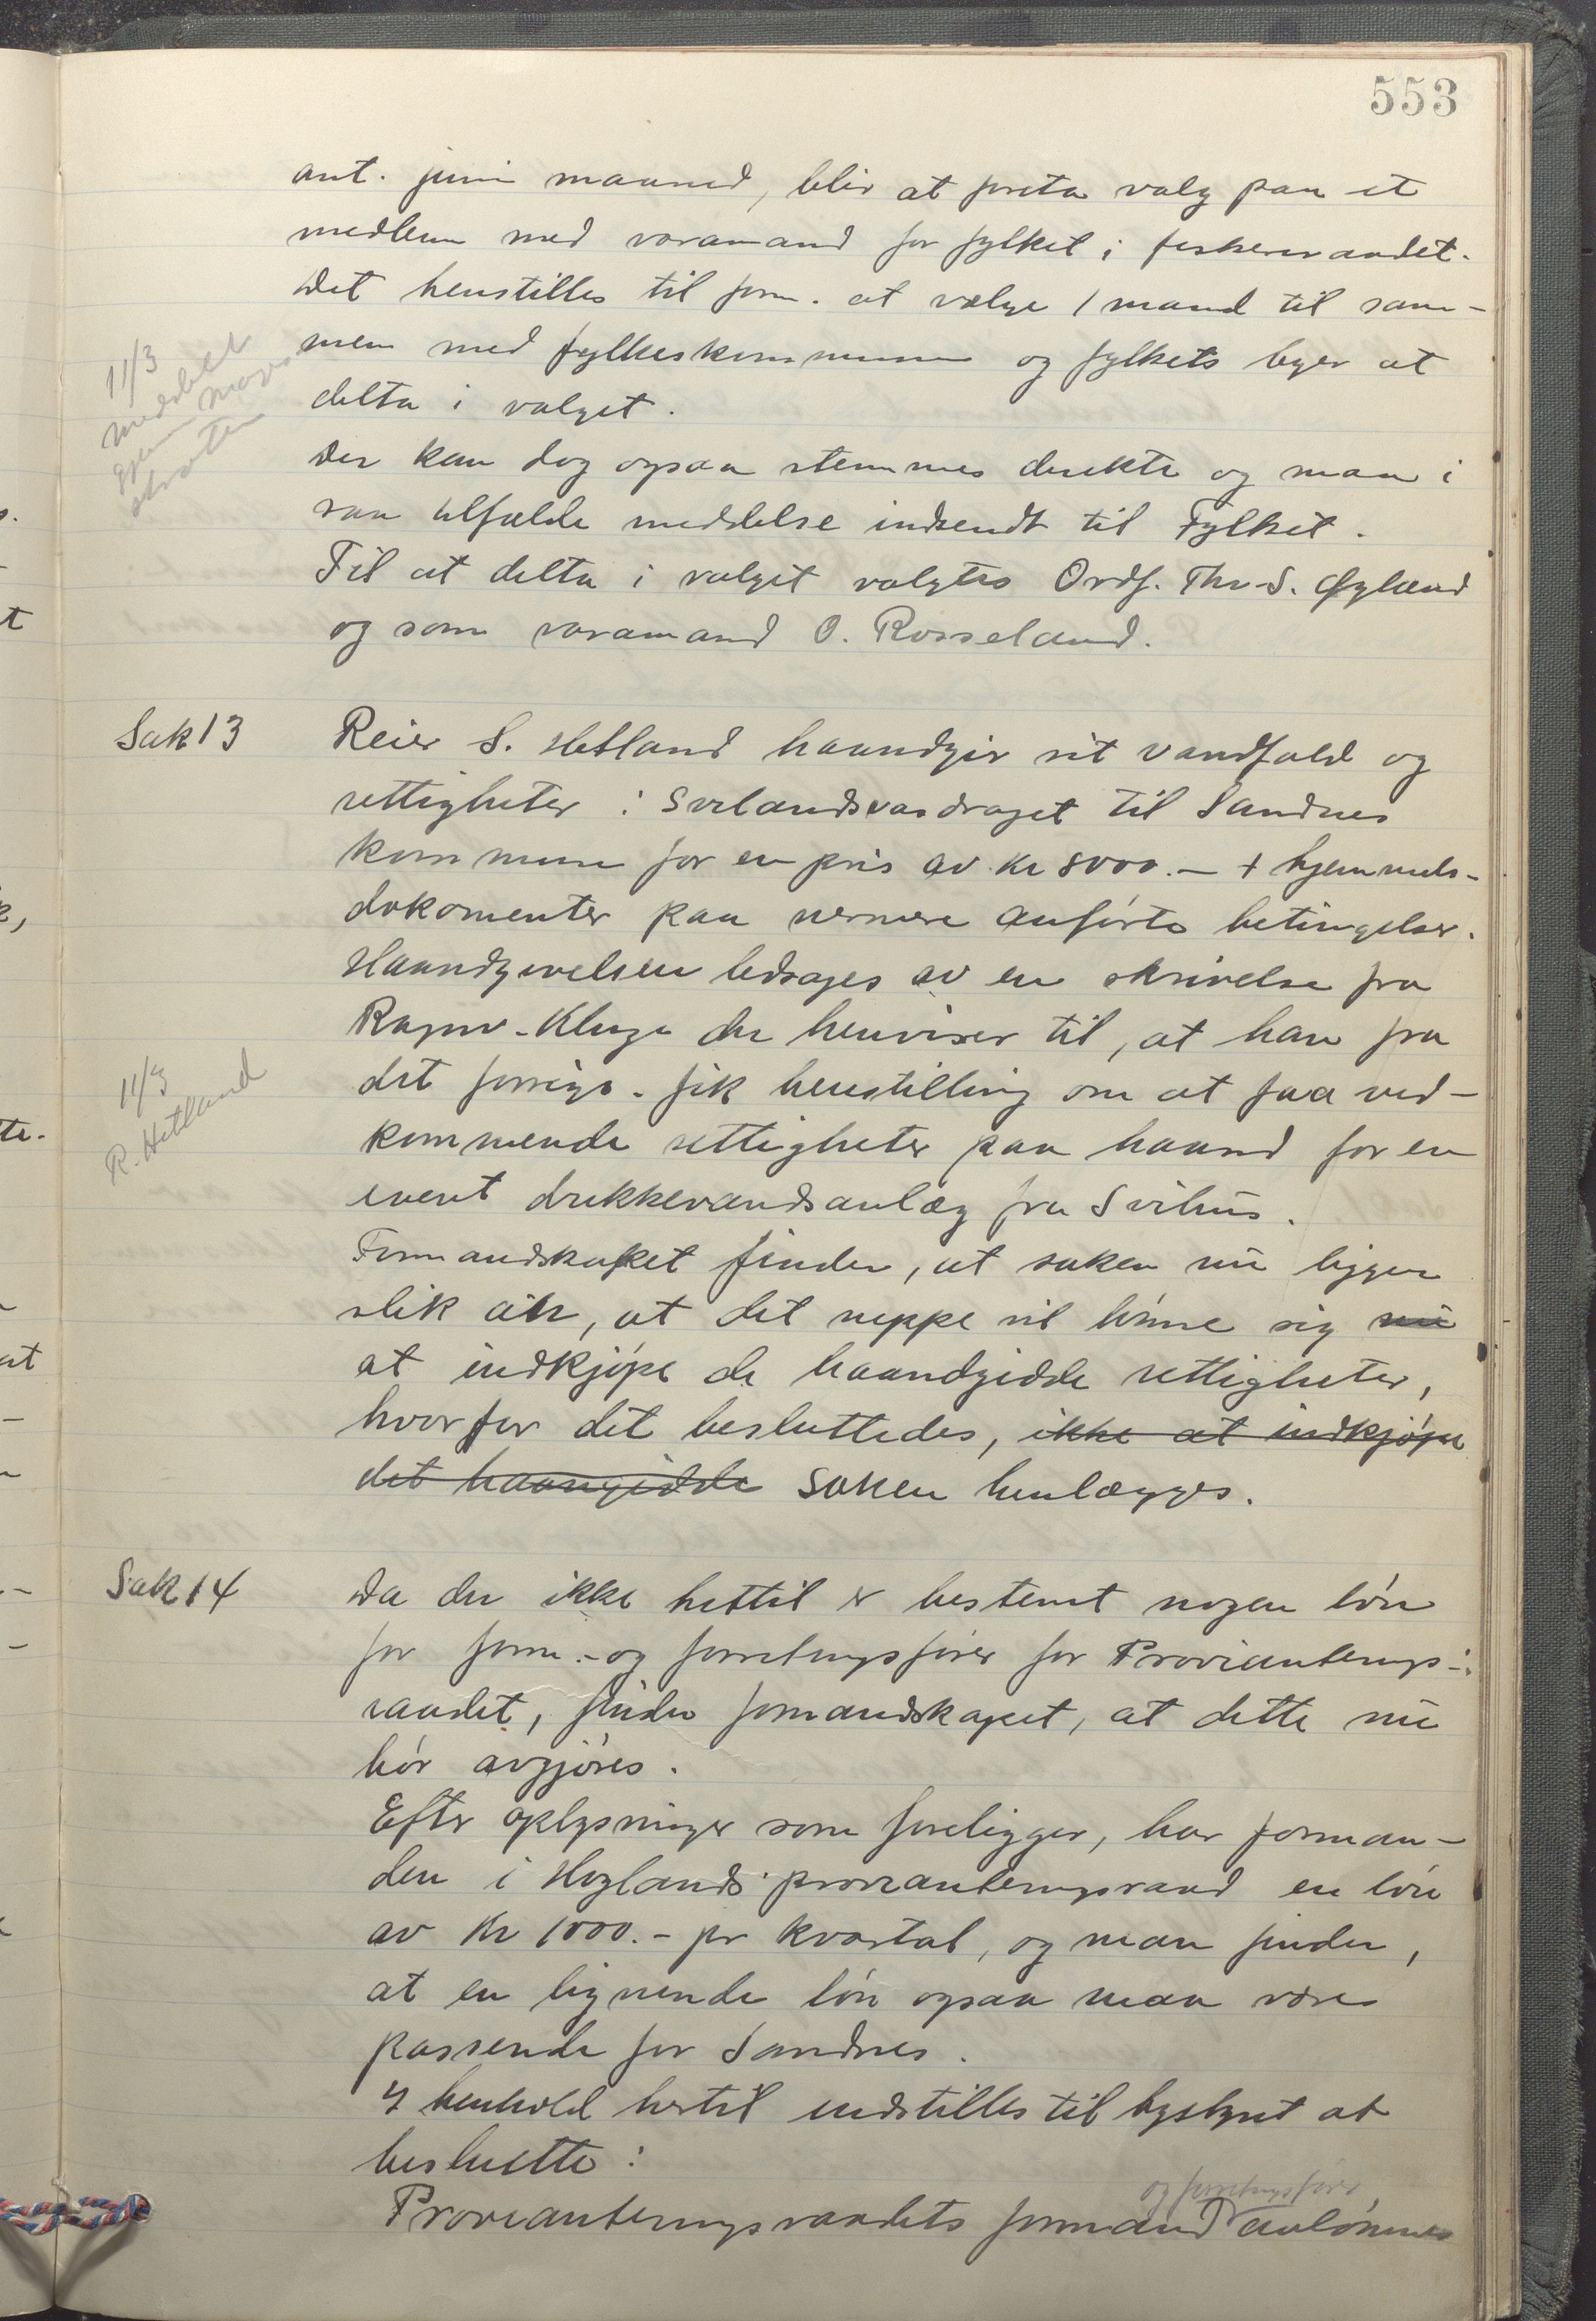 553
ant. juni maaned, blir at foreta valg paa et
medlem med varamand for fylket i fiskeraadet.
Det henstilles til form. at vælge 1 mand til sam-
men med fylkeskommunen og fylkets byer at
delta i valget.
Der kan dog ogsaa stemmes direkte og maa i
saa tilfælde meddelse indsendt til Fylket.
Til at delta i valget valgtes Ordf. Thv. S. Øgland
og som varamand O. Rosseland.
11/3
meddelt
gjennem
Sak 13
Reier S. Hetland haandgir sit vandfald og
rettigheter i Svilandsvasdraget til Sandnes
kommune for en pris av kr 8000.- + hjemmels-
dokomenter paa nermere anførte betingelser.
Haandgivelsen ledsages av en skrivelse fra
Ragnv. Kluge der henviser til, at han fra
det forrige. fik henstilling om at faa ved-
kommende rettigheter paa haand for en
event drikkevandsanlæg fra Svihus.
Formandskapet finder, at saken nu ligger
slik an, at det neppe vil lønne sig nu
at indkjøpe de haandgidde rettigheter,
hvorfor det besluttedes, ikke at indkjøpe
det haangidde saken henlægges.
11/3
R. Hetland
Sak 14
Da der ikke hertil er bestemt nogen løn
for form.- og forretningsfører for Provianterings-
raadet, finder formandskapet, at dette nu
bør avgjøres.
Efter oplysninger som foreligger, har forman-
den i Høylands provianteringsraad en løn
av Kr 1000.- pr kvartal, og man finder,
at en lignende løn ogsaa maa være
passende for Sandnes.
I henhold hertil indstilles til bystyret at
beslutte:
og forretningsfører
Provianteringsraadets formand avlønnes